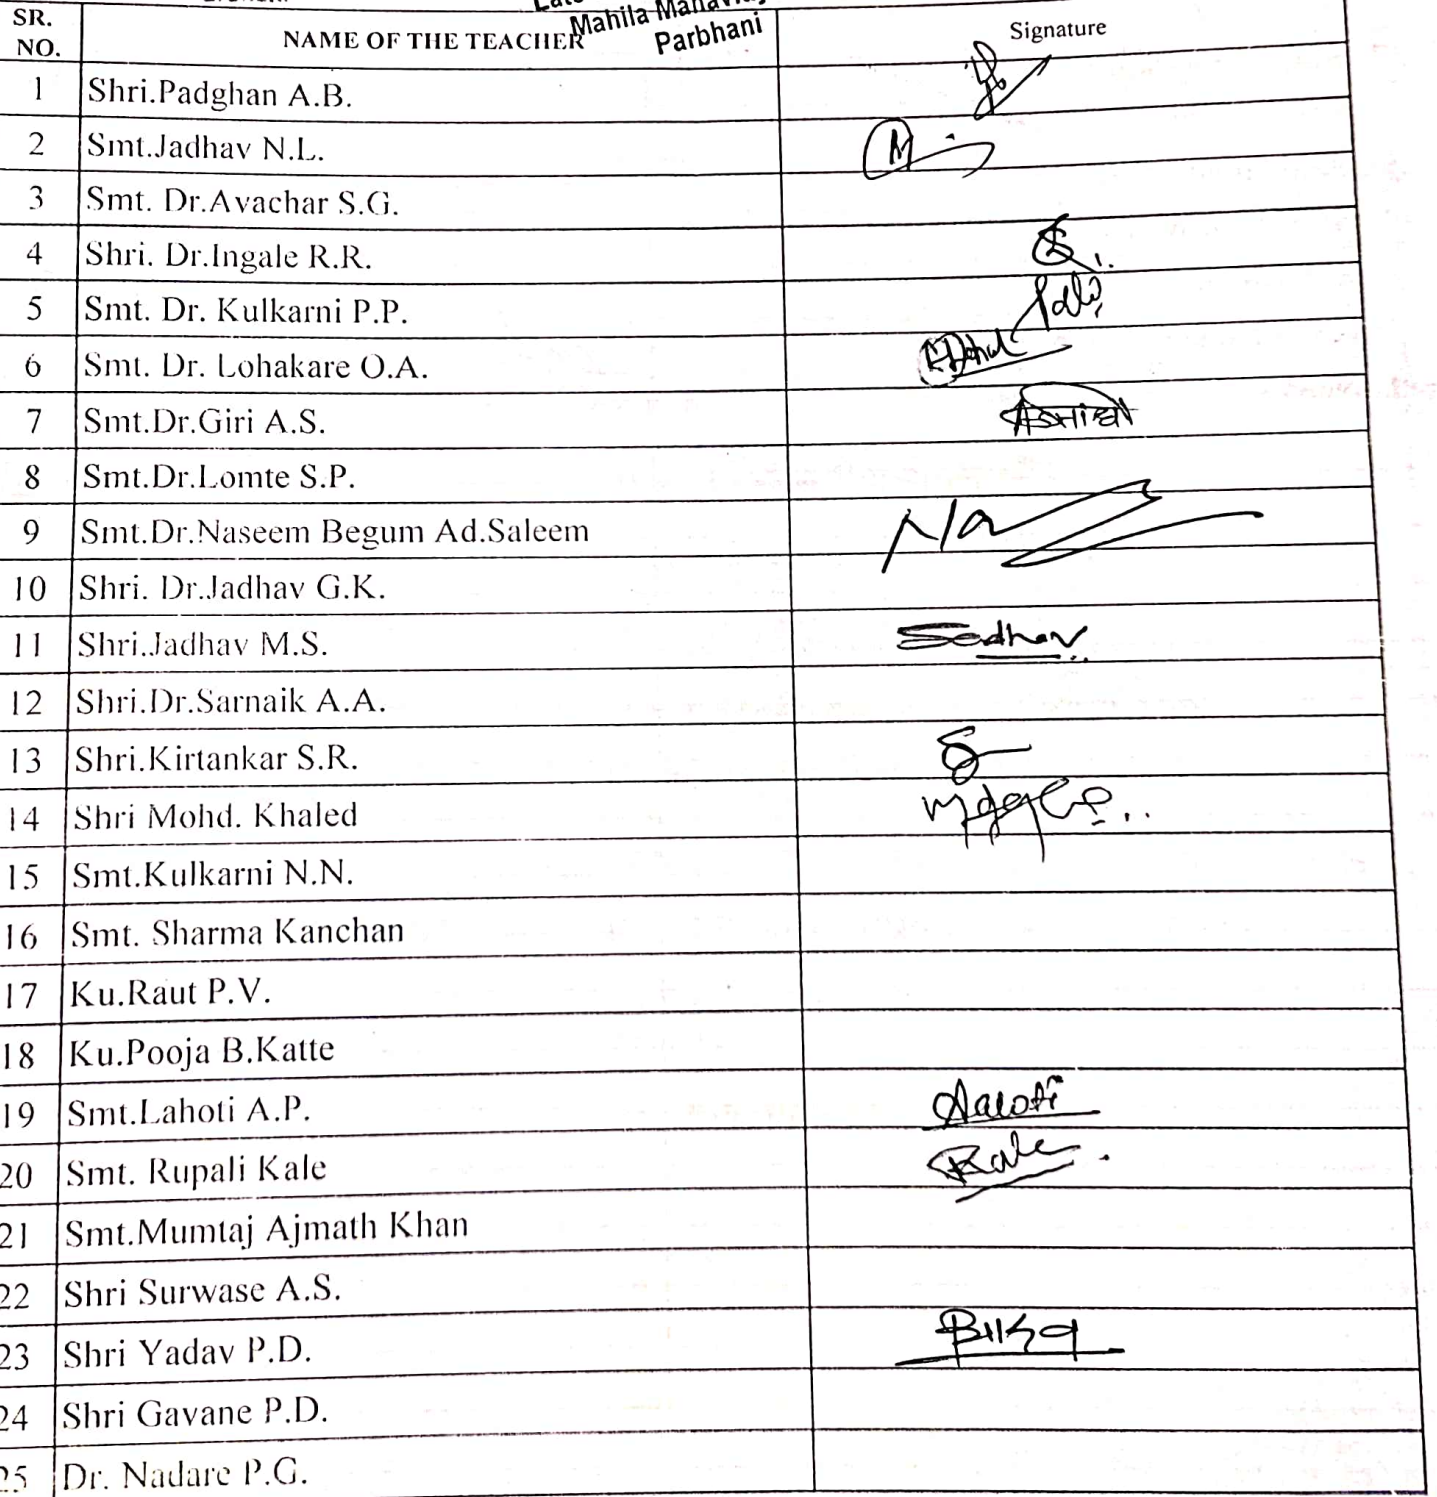 Mahila Mahavidy
Parbhani
SR. NO. NAME OF THE TEACHER Signature
1 Shri.Padghan A.B.
2 Smt.Jadhav N.L.
3 Smt. Dr.Avachar S.G.
4 Shri. Dr.Ingale R.R.
5 Smt. Dr. Kulkarni P.P.
6 Smt. Dr. Lohakare O.A.
7 Smt.Dr.Giri A.S.
8 Smt.Dr.Lomte S.P.
9 Smt.Dr.Naseem Begum Ad.Saleem
10 Shri. Dr.Jadhav G.K.
11 Shri.Jadhav M.S.
12 Shri.Dr.Sarnaik A.A.
13 Shri.Kirtankar S.R.
14 Shri Mohd. Khaled
15 Smt.Kulkarni N.N.
16 Smt. Sharma Kanchan
17 Ku.Raut P.V.
18 Ku.Pooja B.Katte
19 Smt.Lahoti A.P.
20 Smt. Rupali Kale Kale
21 Smt.Mumtaj Ajmath Khan
22 Shri Surwase A.S.
23 Shri Yadav P.D.
24 Shri Gavane P.D.
25 Dr. Nadare P.G.